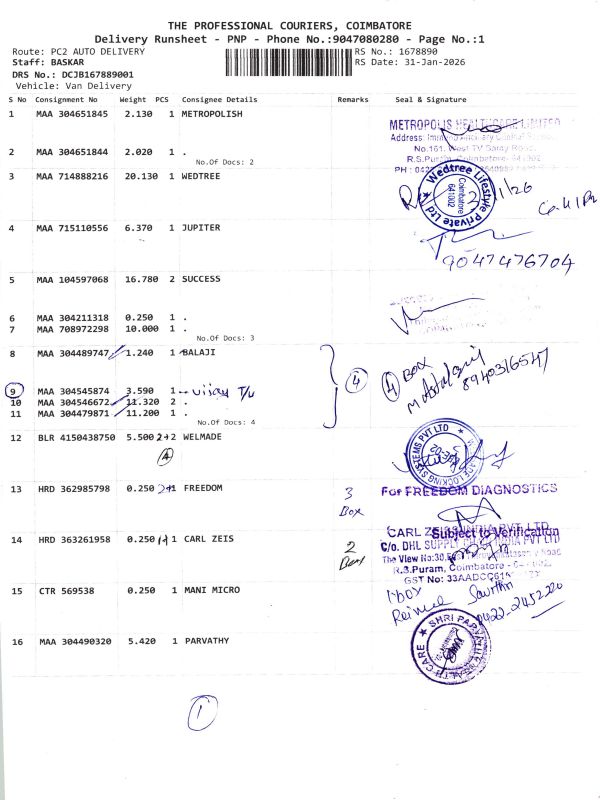 THE PROFESSIONAL COURIERS, COIMBATORE
Delivery Runsheet - PNP - Phone No.:9047080280 - Page No.:1
Route: PC2 AUTO DELIVERY RS No.: 1678890
Staff: BASKAR RS Date: 31-Jan-2026
DRS No.: DCJB167889001
Vehicle: Van Delivery
S No Consignment No Weight PCS Consignee Details Remarks Seal & Signature
1 MAA 304651845 2.130 1 METROPOLISH
METROPOLIS HEALTHCARE LIMITED
No.161, West TV Samy Road,
2 MAA 304651844 2.020 1 .
R.S.Puram, Coimbatore
No.Of Docs: 2
3 MAA 714888216 20.130 1 WEDTREE
Wedtree Lifestyle Private Ltd
Coimbatore 641002
4 MAA 715110556 6.370 1 JUPITER
9047476704
5 MAA 104597068 16.780 2 SUCCESS
6 MAA 304211318 0.250 1 .
7 MAA 708972298 10.000 1 .
No.Of Docs: 3
8 MAA 304489747 1.240 1 BALAJI
4 4 BOX
8940316547
9 MAA 304545874 3.590 1 -- vijay T/U
10 MAA 304546672 11.320 2 .
11 MAA 304479871 11.200 1 .
No.Of Docs: 4
12 BLR 4150438750 5.500 2+2 WELMADE
4
LOCKING SYSTEMS PVT LTD
13 HRD 362985798 0.250 2+1 FREEDOM 3 Box
For FREEDOM DIAGNOSTICS
14 HRD 363261958 0.250 1+1 CARL ZEIS 2 Box
CARL ZEISS INDIA PVT LTD
Subject to Verification
C/o. DHL SUPPLY CHAIN INDIA PVT LTD
R.S.Puram, Coimbatore
GST No: 33AADCC
15 CTR 569538 0.250 1 MANI MICRO
1 box
0422-2452220
16 MAA 304490320 5.420 1 PARVATHY
SHRI PARVATHI HEALTH CARE
1